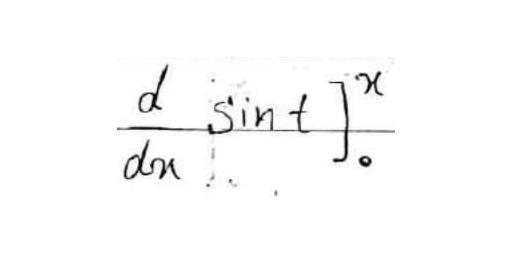 d/dx sin t]₀ˣ